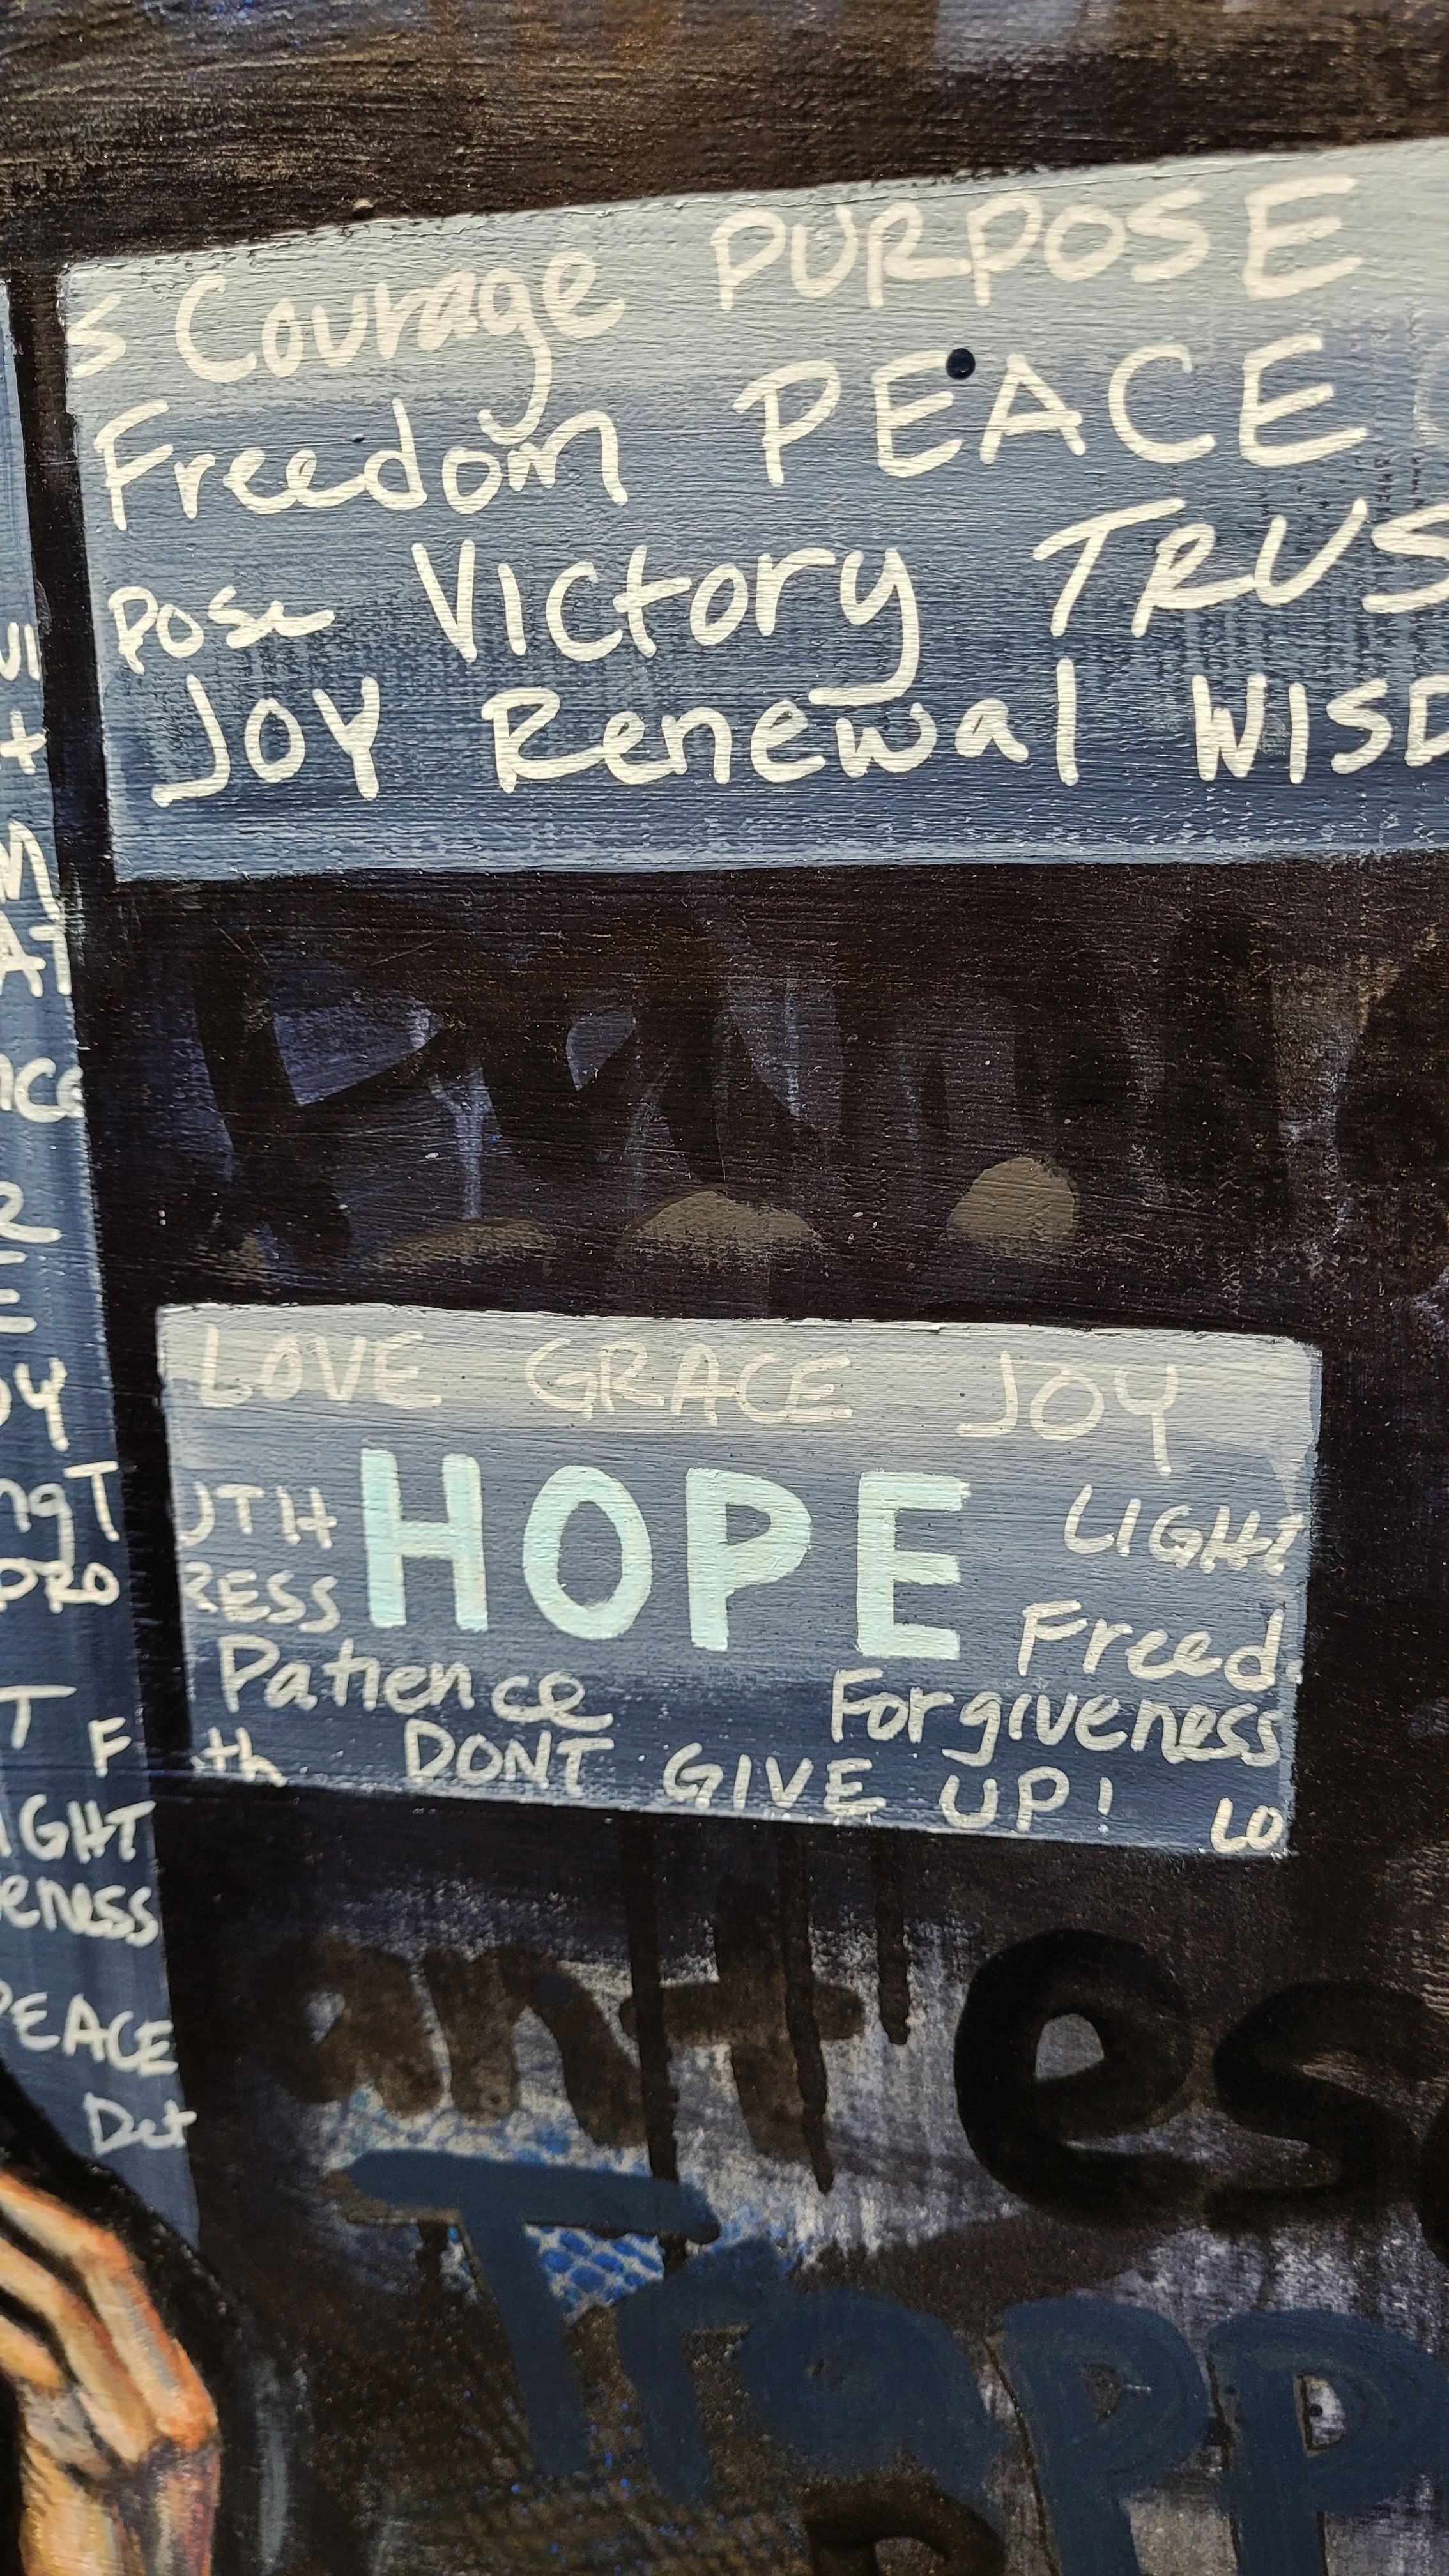 S Courage PURPOSE
Freedom PEACE
POSE Victory TRUS
JOY Renewal WISD
LOVE GRACE JOY
UTH HOPE LIGHT
RESS Freed
Patience Forgiveness
th DONT GIVE UP! LO
VI
t
M
AT
nce
R
OY
ngT
PRO
T F
IGHT
eness
PEACE
Det
ant esc
Trapp